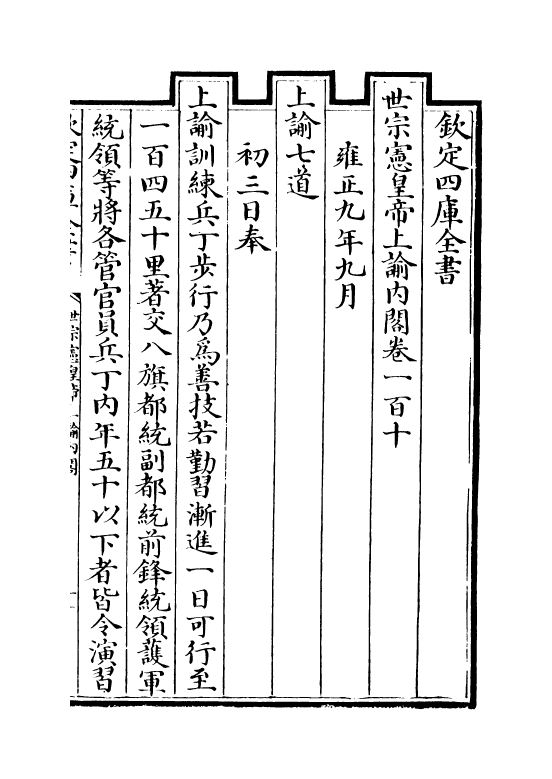 欽定四庫全書
世宗憲皇帝上諭內閣卷一百十
雍正九年九月
上諭七道
初三日奉
上諭訓練兵丁步行乃為善技若勤習漸進一日可行至
一百四五十里著交八旗都統副都統前鋒統領護軍
統領等將各管官員兵丁內年五十以下者皆令演習